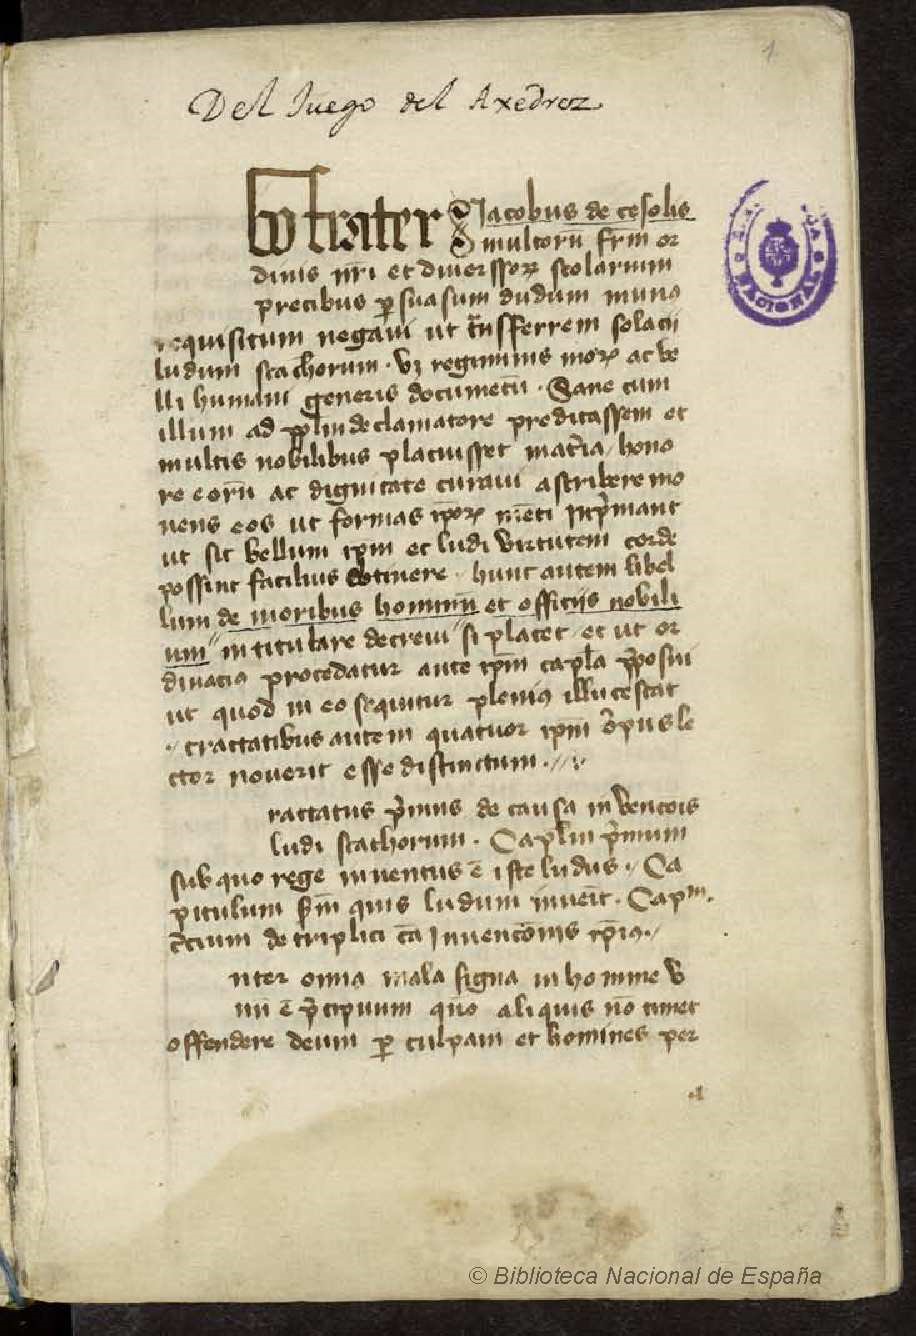 1
Del Juego del Axedrez
go frater Jacobus de cesolis
multorū frm̄ or
dinis nr̄i et diverssorꝝ scolarium
precibus ꝑsuasum dudum minus
requisitum negavi ut trāsferrem solacii
ludum scachorum . vꝫ regiminis morꝝ ac be
lli humani generis documētū . Sane cum
illum ad ppl̄m declamatore predicassem et
multis nobilibus placuisset mat̄ia / hono
re eorū ac dignitate curavi ascribere mo
nens eos ut formas ip̄orꝝ mēti inp̄mant
ut sic bellum ip̄m et ludi virtutem corde
possint facilius obtinere . hunc autem libel
lum de moribus hominū et officiis nobili
um // intitulare decrevi // si placet / et ut or
dinatiꝯ procedatur ante ip̄m capl̄a p̄posui
ut quod in eo sequitur pleniꝯ illucescat
// tractatibus autem quatuor ip̄m op̄us le
ctor noverit esse distinctum . //
ractatus p̄mus de causa inventōis
ludi scachorum . Capl̄m p̄mum
sub quo rege inventus ē iste ludus . // Ca
pitulum sc̄dm quis ludum invēit . Capm .
t̄cium de triplici cā invencōnis ip̄iꝯ . /
nter omnia mala signa in homine v
nū ē p̄cipuum qn̄o aliquis nō timet
offendere deum ꝑ culpam et homines per
© Biblioteca Nacional de España